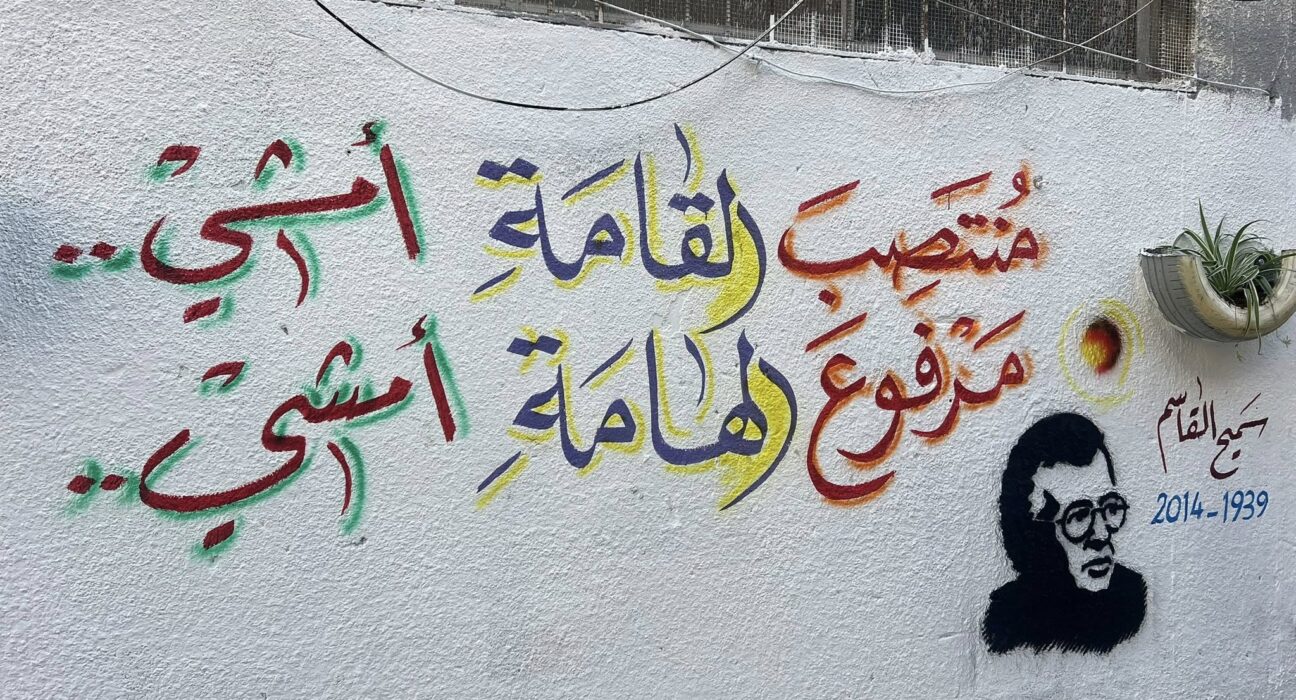 مُنتَصِبَ القامَةِ أمشيْ..
مَرْفوعَ الهامَةِ أمشيْ..
سَميح القاسم
2014-1939